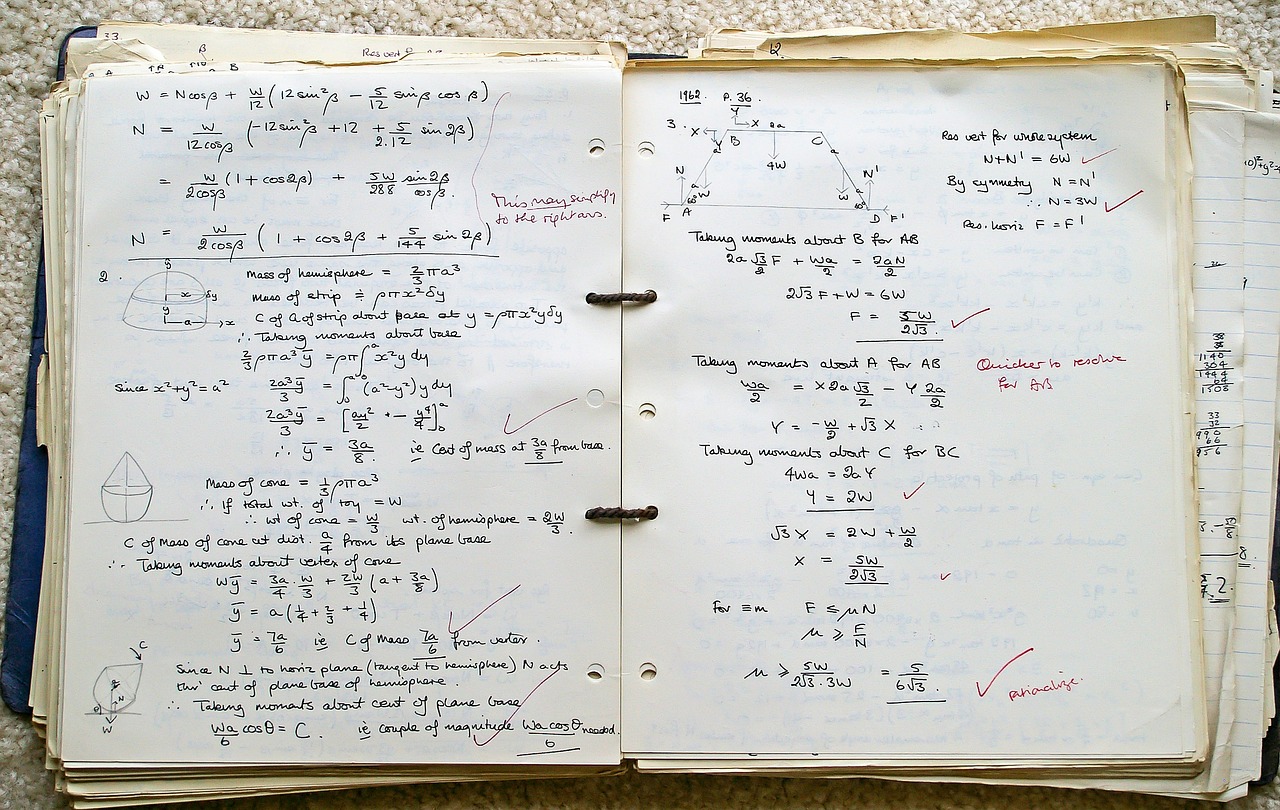 33.
β
Res vert
B
W = N cosβ + W/12 (12 sin²β − 5/12 sinβ cosβ)
N = W/12cosβ (−12 sin²β + 12 + 5/2.12 sin 2β)
= W/2cosβ (1 + cos2β) + 5W/288 sin2β/cosβ.
This may simplify
to the right ans.
N = W/2cosβ (1 + cos2β + 5/144 sin 2β)
2.
y
x δy
y
a x
Mass of hemisphere = 2/3 πa³
Mass of strip ≑ ρπx²δy
C of G of strip about base at y = ρπx²yδy
∴ Taking moments about base
2/3 ρπa³ȳ = ρπ∫₀ᵃ x²y dy
Since x²+y² = a² 2a³ȳ/3 = ∫₀ᵃ (a²−y²) y dy
2a³ȳ/3 = [ay²/2 − y⁴/4]₀ᵃ
∴ ȳ = 3a/8 ie Cent of mass at 3a/8 from base.
Mass of cone = 1/3 ρπa³
∴ If total wt. of toy = W
∴ wt of cone = W/3 wt. of hemisphere = 2W/3.
C of Mass of cone at dist. a/4 from its plane base
∴ Taking moments about vertex of cone
Wȳ = 3a/4 . W/3 + 2W/3 (a + 3a/8)
ȳ = a(1/4 + 2/3 + 1/4)
ȳ = 7a/6 ie C of Mass 7a/6 from vertex.
C
θ
N
W
Since N ⊥ to horiz plane (tangent to hemisphere) N acts
thro' cent of plane base of hemisphere.
∴ Taking moments about cent of plane base
Wa/6 cosθ = C. ie couple of magnitude Wa cosθ/6 needed.
12.
1962. P. 36.
3.
Y
X X 2a
Y B C
a a
4W
N a a N'
W W
60° 60°
F A D F'
Res vert for whole system
N+N' = 6W
By symmetry N = N'
∴ N = 3W
Res. horiz F = F'
Taking moments about B for AB
2a √3/2 F + Wa/2 = 2aN/2
2√3 F + W = 6W
F = 5W/2√3.
Taking moments about A for AB
Quicker to resolve
for AB
Wa/2 = X 2a √3/2 − Y 2a/2
Y = −W/2 + √3 X
Taking moments about C for BC
4Wa = 2aY
Y = 2W
√3 X = 2W + W/2
X = 5W/2√3
For ≡m F ≤ μN
μ ≥ F/N
μ ≥ 5W/2√3.3W = 5/6√3.
rationalize.
38
38
1140
304
1444
64
1508
33
32
990
66
956